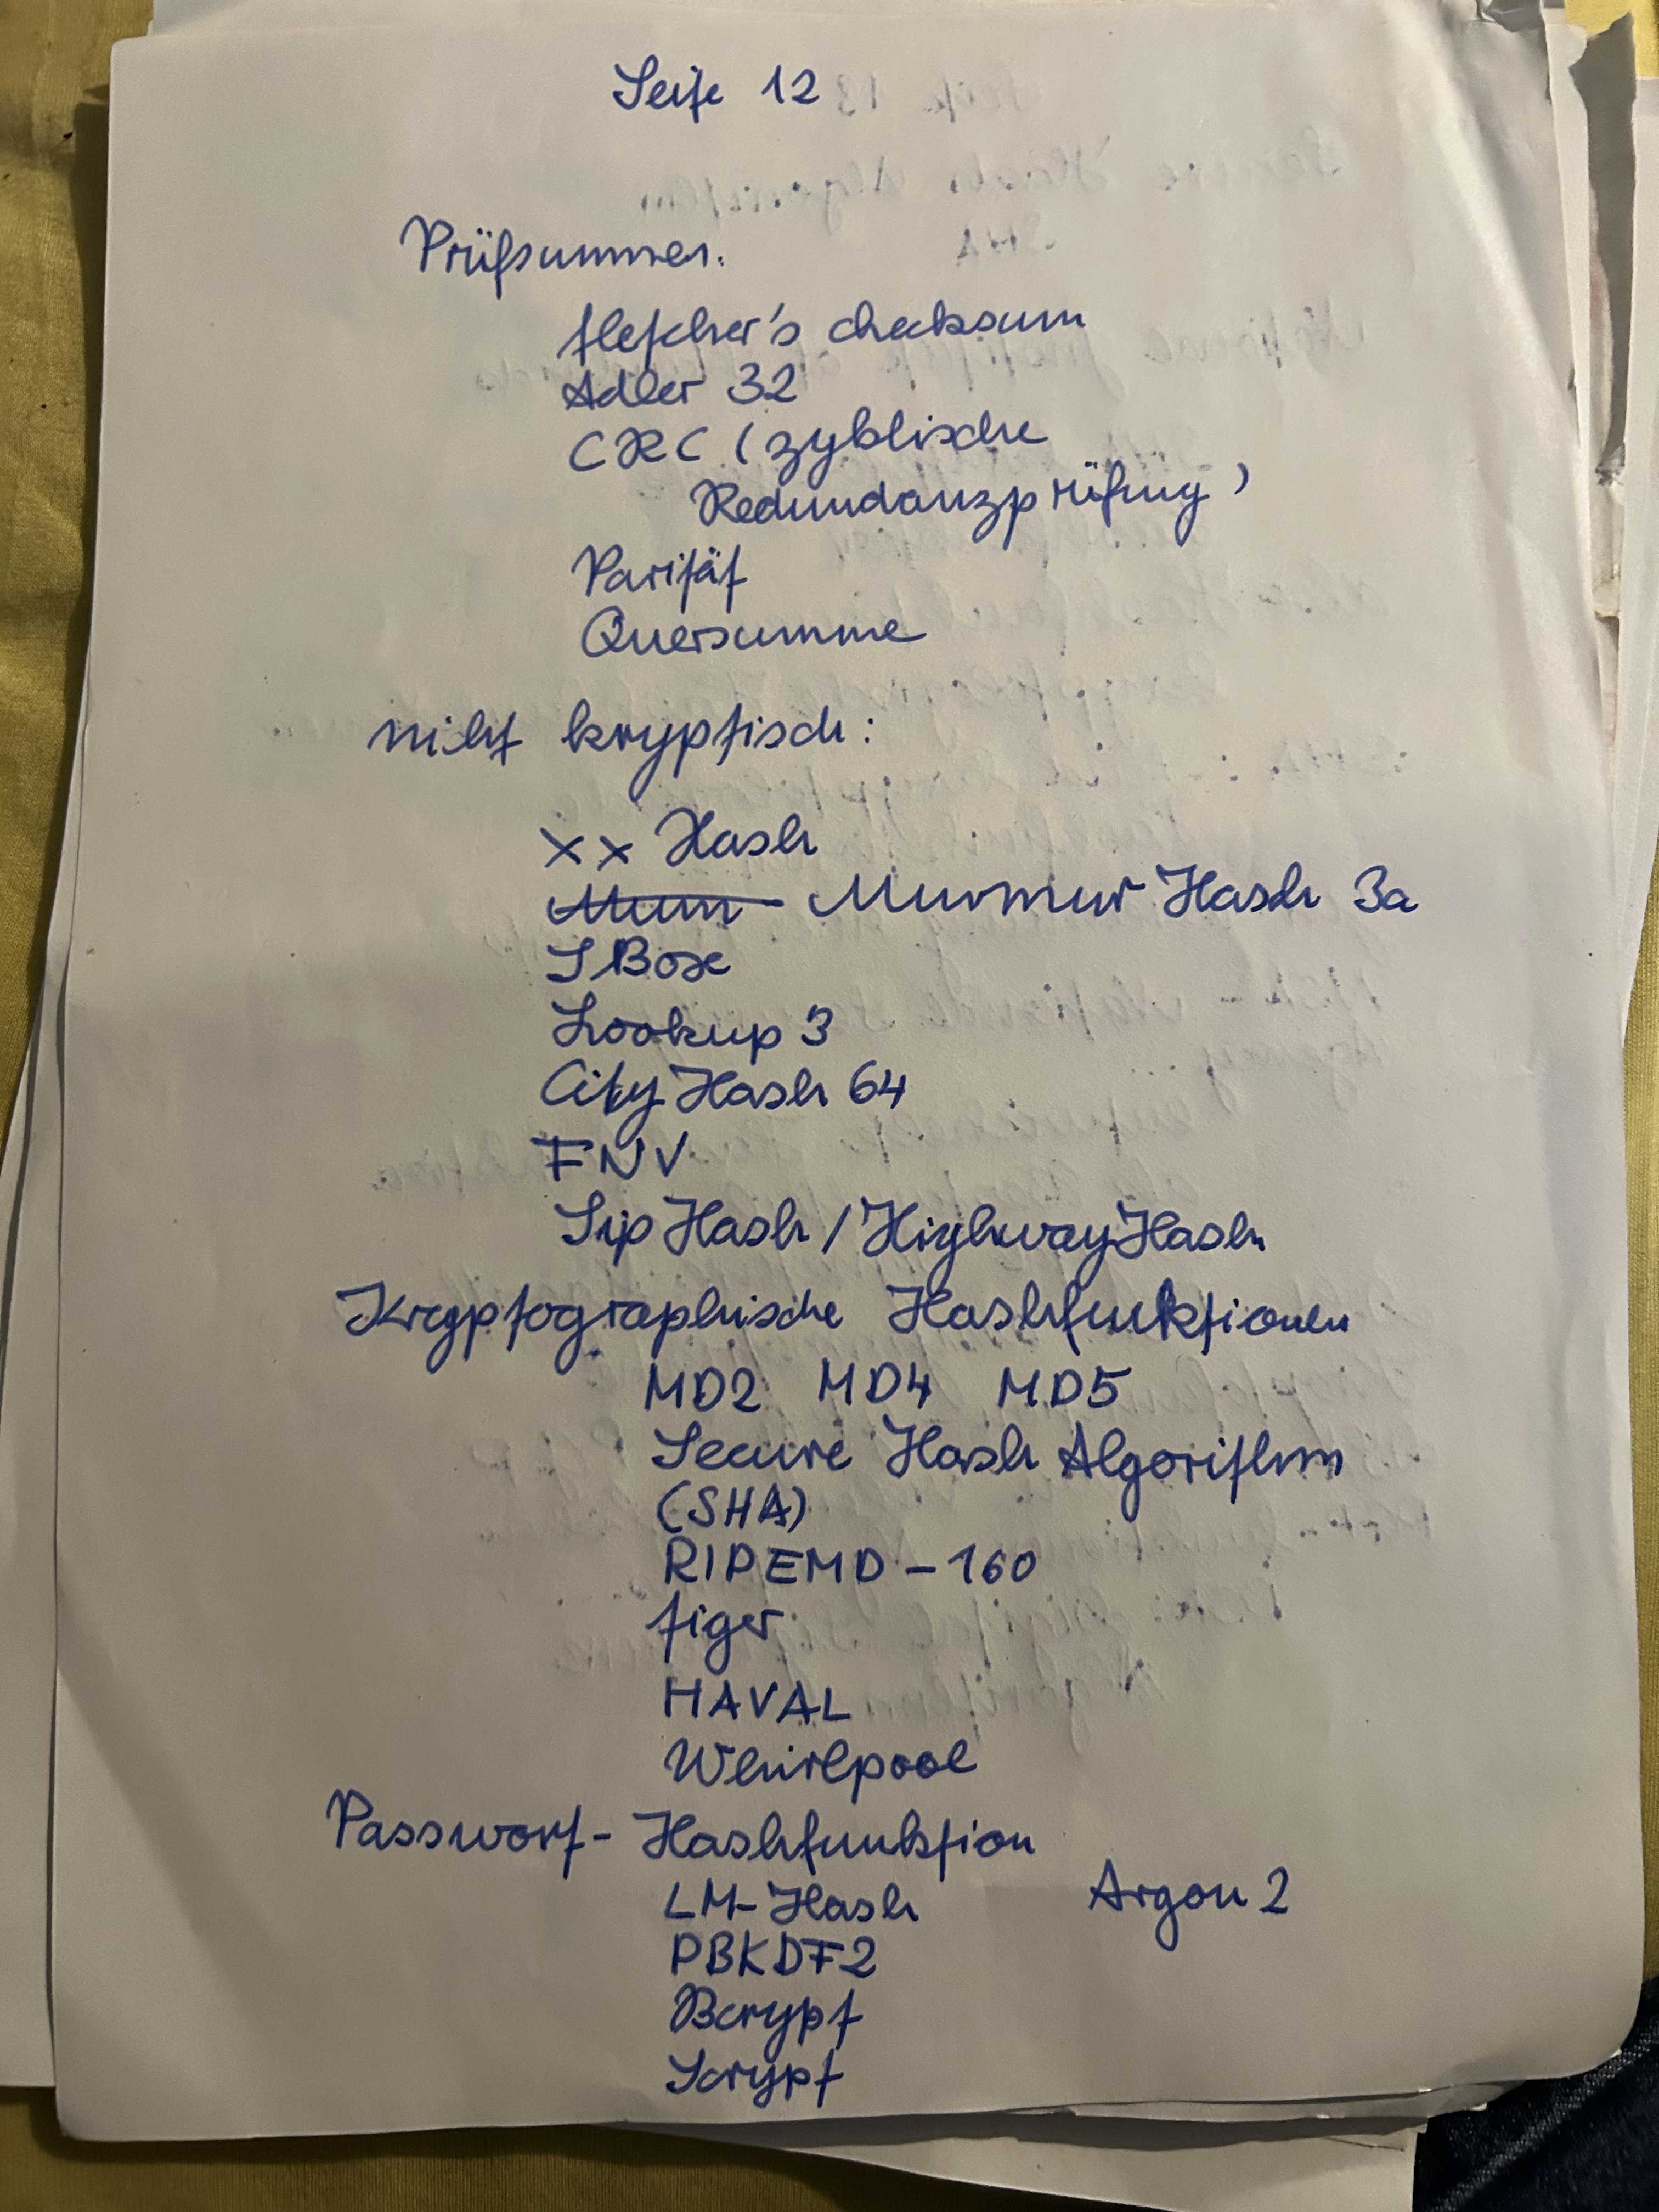 Seite 12
Prüfsummen:
fletcher's checksum
Adler 32
CRC (zyklische
Redundanzprüfung)
Parität
Quersumme
nicht kryptisch:
xx Hash
Murmur Hash 3a
SBox
Lookup 3
City Hash 64
FNV
Sip Hash / HighwayHash
Kryptographische Hashfunktionen
MD2 MD4 MD5
Secure Hash Algorithm
(SHA)
RIPEMD - 160
tiger
HAVAL
Whirlpool
Passwort - Hashfunktion
LM-Hash Argon 2
PBKDF2
Bcrypt
Scrypt